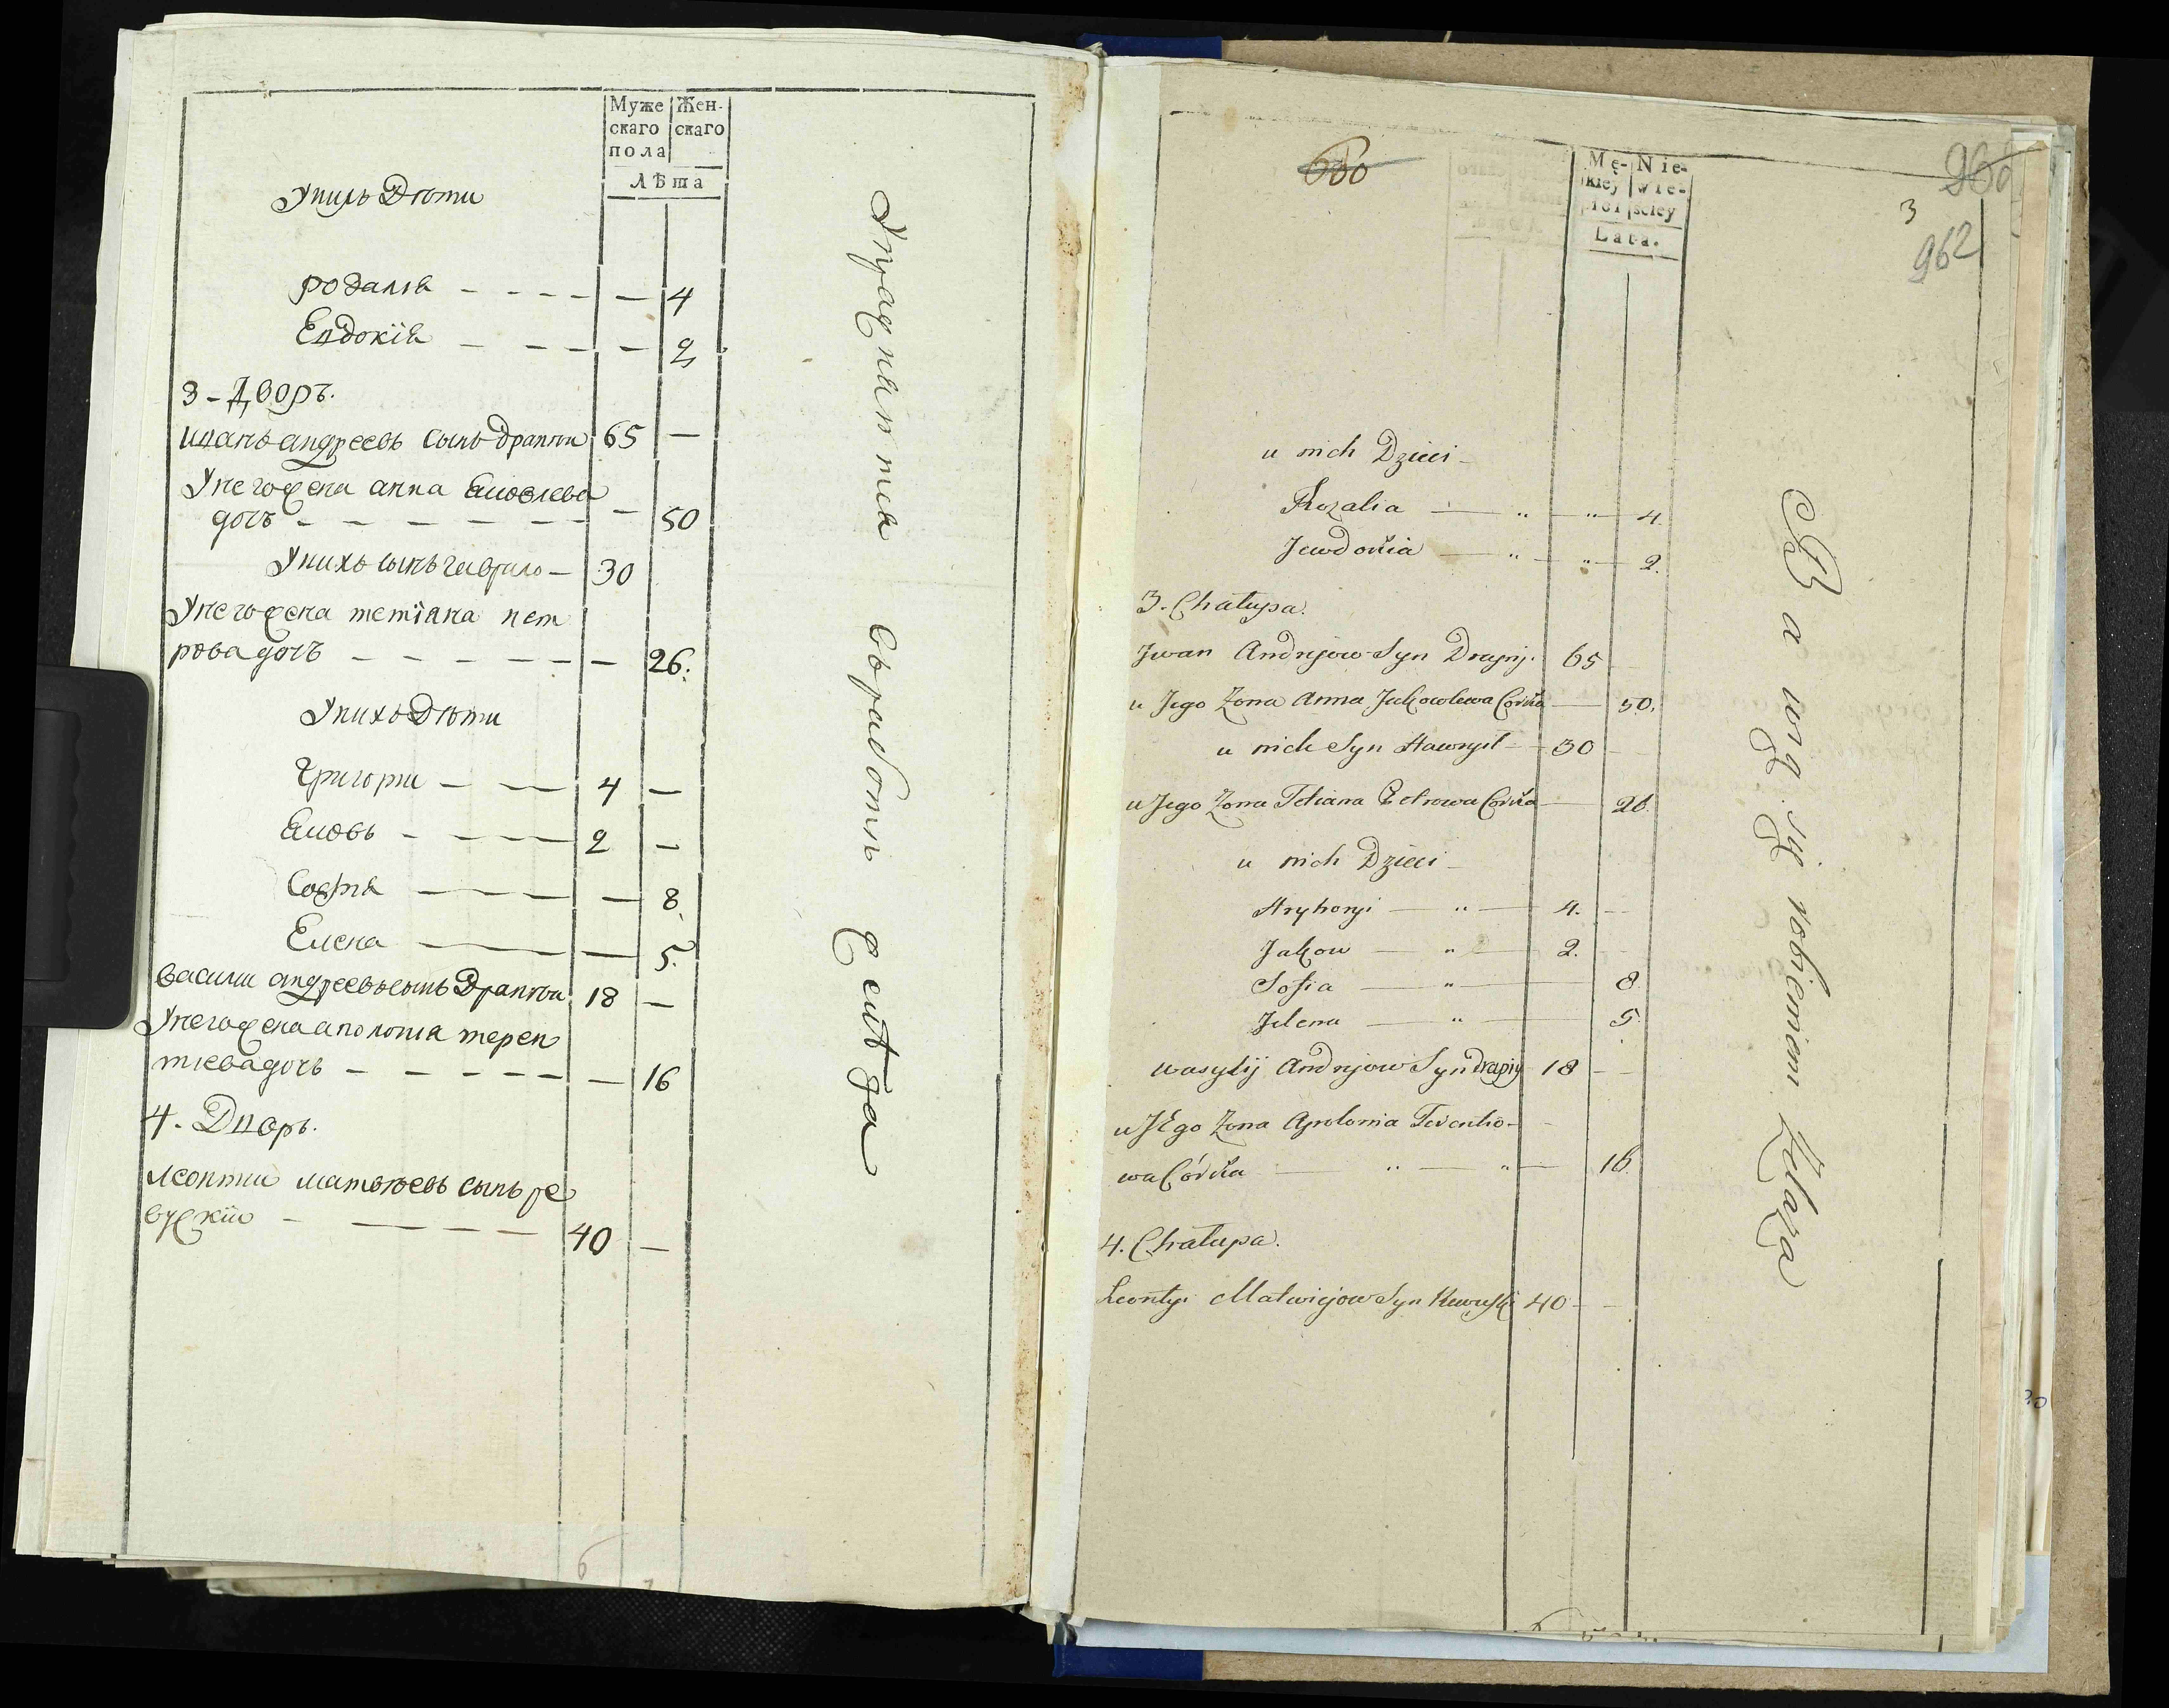 Муже
скаго
пола
Жен-
скаго
Лѣта
Унихъ Дѣти
розалія - - - - — 4
Евдокія - - - — 2
3 - Дворъ.
иванъ андреевъ сынъ драпѣи 65 —
Унего жена анна Яковлева
дочъ - - - - - - — 50
Унихъ сынъ гаврило - 30
Унего жена тетіана пет
рова дочъ - - - - - - — 26.
Унихъ Дѣти
Григории - — — 4 —
Яковъ - - - — 2 —
Софія — — — — — 8.
Елена — — — 5.
василии андреевъ сынъ Драпѣи 18 —
Унего жена аполонія терен
тіева дочъ - - - - - - — 16
4. Дворъ.
леонтии матвѣевъ сынъ ре
вускіи - — — — — 40 —
Упражняются въ работѣ
Mę-
kiey
Nie-
wie-
sciey
Lata.
3
962
u nich Dzieci -
Rozalia — „ — „ — 4.
Jewdokia — „ — „ — 2.
3. Chałupa.
Jwan Andrejow Syn Drapij. 65
u Jego Żona Anna Jakowlewa Córka — 50.
u nich Syn Hawryił - 30
u Jego Żona Tetiana Petrowa Córka — 26.
u nich Dzieci -
Hryhoryi — „ — 4.
Jakow — „ — 2.
Sofia — „ — 8
Jelena — „ — 5.
wasylij Andrejow Syn drapiy 18
u JEgo Żona Apolonia Terentio-
wa Córka — „ — „ — 16.
4. Chałupa.
Leontyi Matwiejow Syn Rewuski 40
Bawią się robieniem